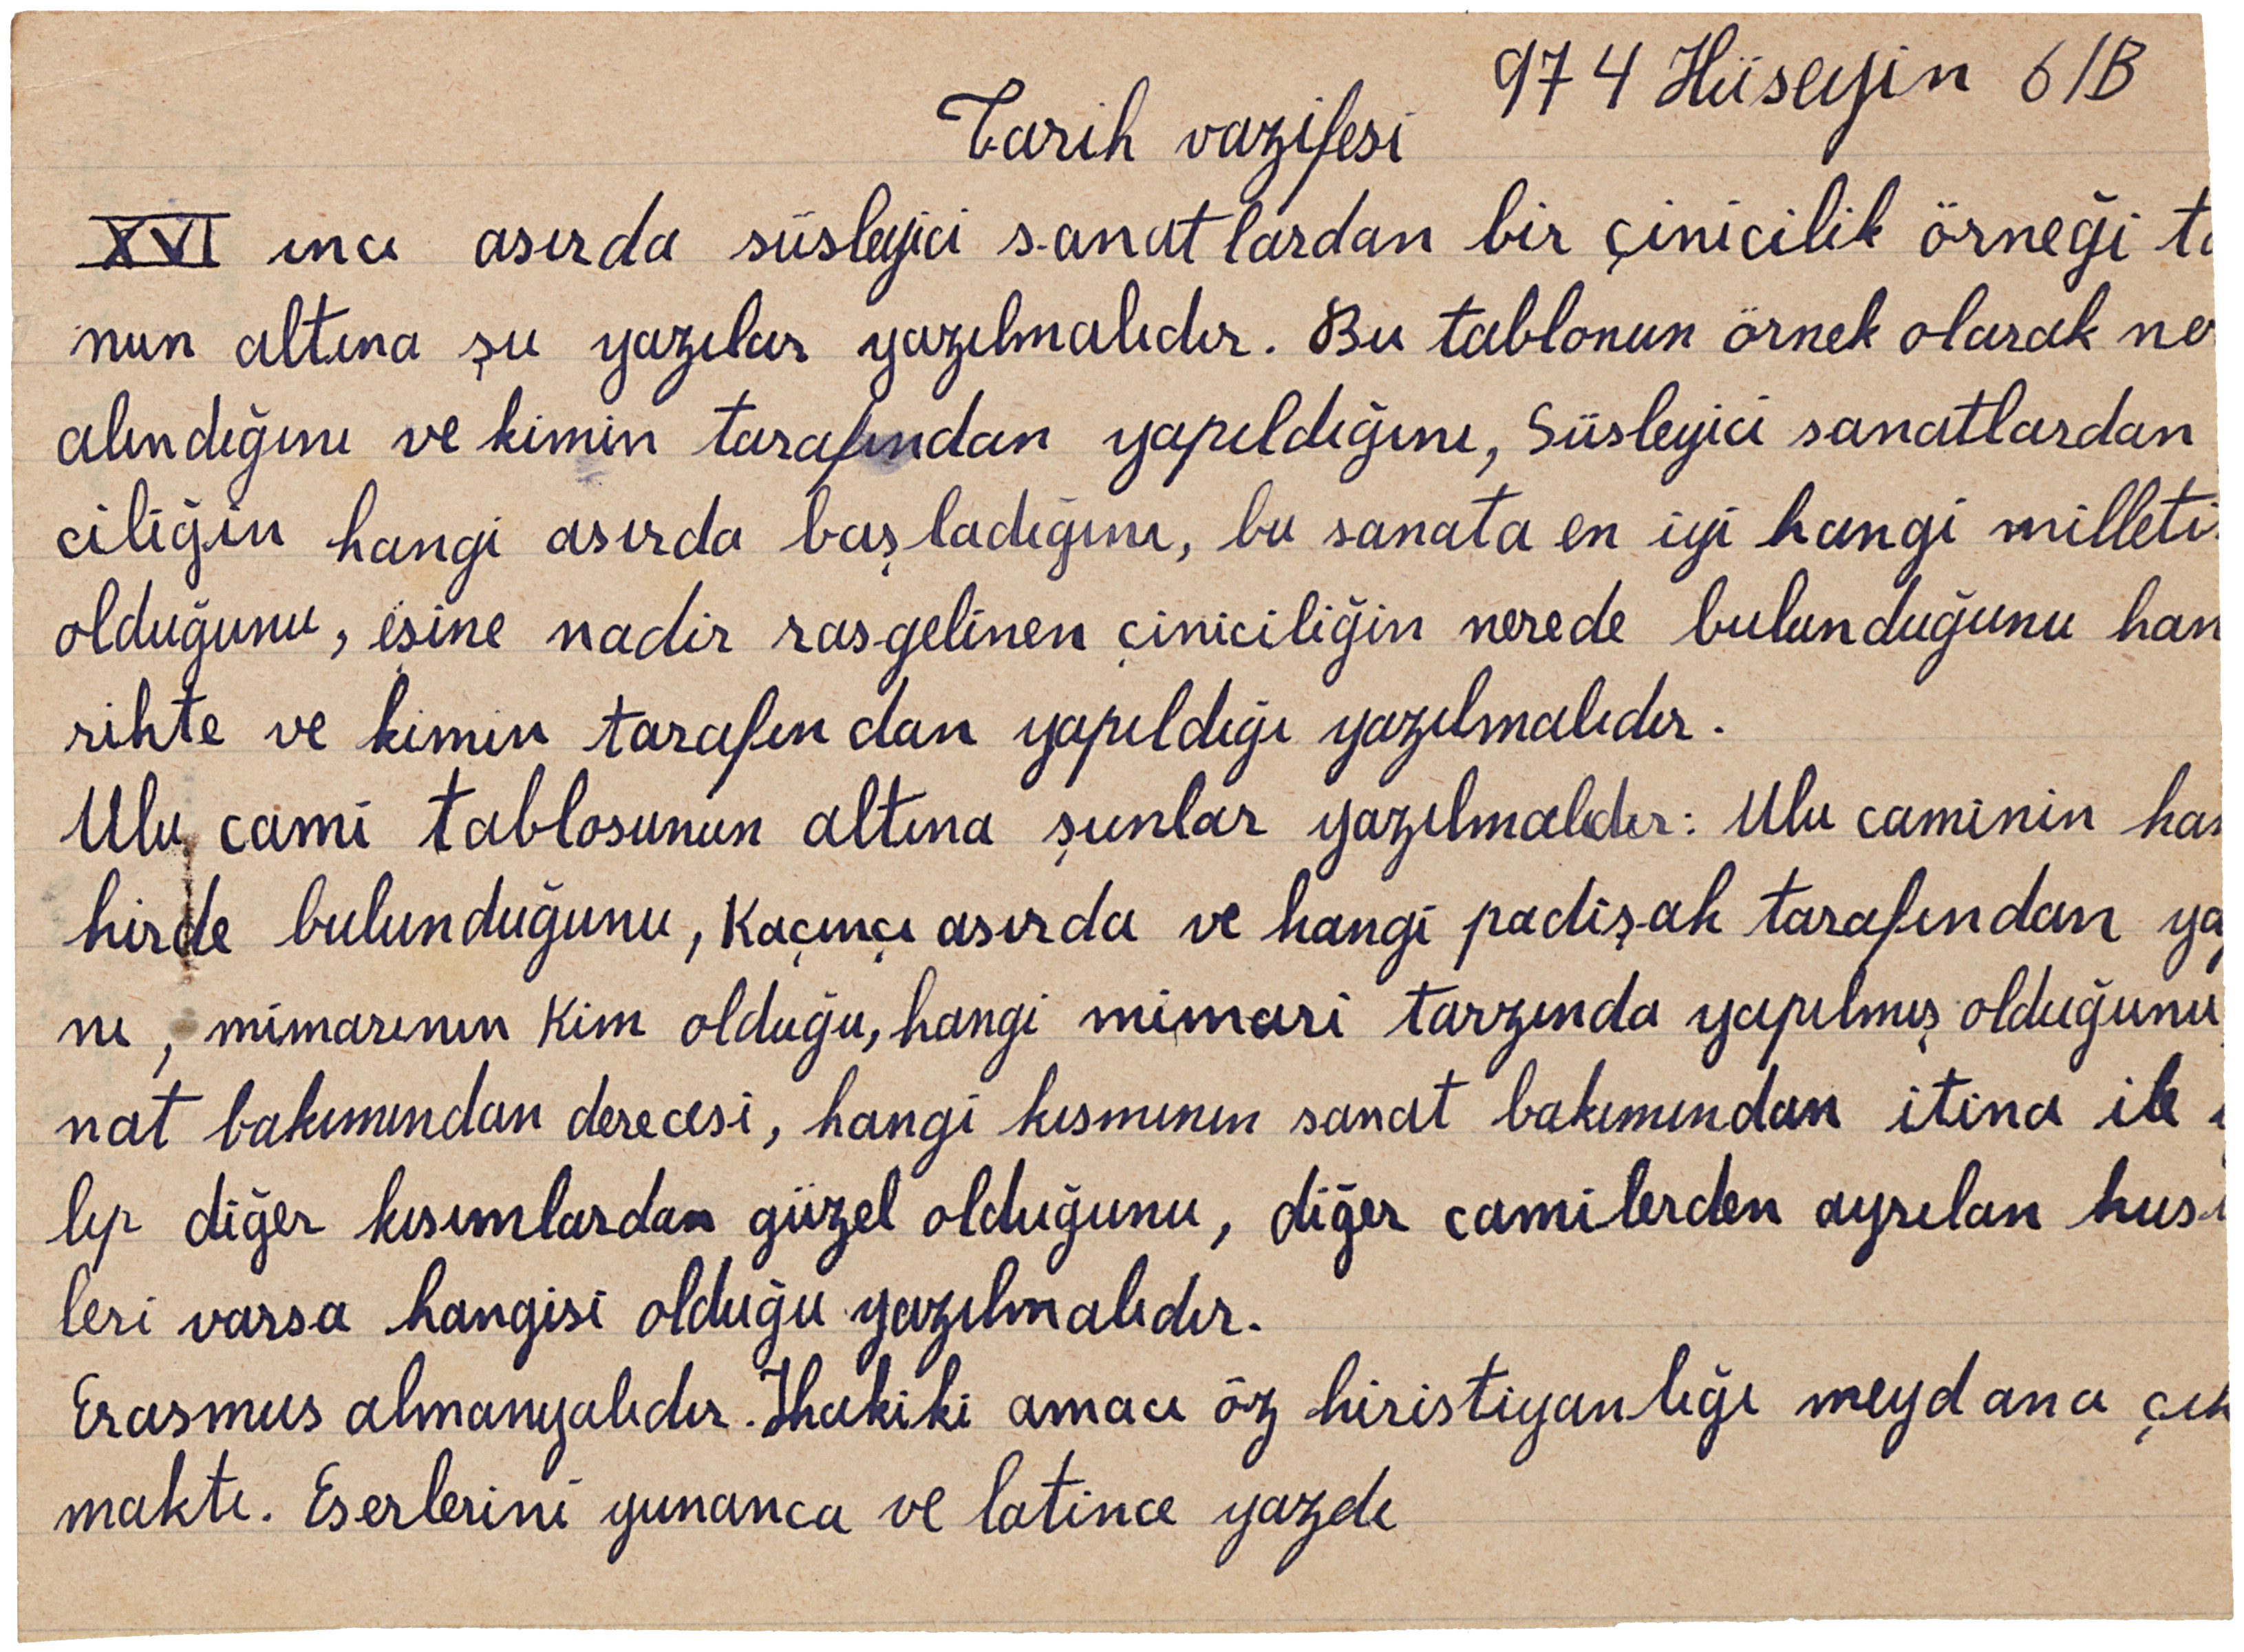 974 Hüseyin 6/B
Tarih vazifesi
XVI ıncı asırda süsleyici sanatlardan bir çinicilik örneği
nun altına şu yazılar yazılmalıdır. Bu tablonun örnek olarak
alındığını ve kimin tarafından yapıldığını, Süsleyici sanatlardan
ciliğin hangi asırda başladığını, bu sanata en iyi hangi
olduğunu, eşine nadir rasgelinen çiniciliğin nerede bulunduğunu
rihte ve kimin tarafından yapıldığı yazılmalıdır.
Ulu cami tablosunun altına şunlar yazılmalıdır: Ulu caminin
hirde bulunduğunu, Kaçınçı asırda ve hangi padişah tarafından
nı, mimarının Kim olduğu, hangi mimari tarzında yapılmış olduğunu
nat bakımından derecesi, hangi kısmının sanat bakımından itina ile
lıp diğer kısımlardan güzel olduğunu, diğer camilerden ayrılan
leri varsa hangisi olduğu yazılmalıdır.
Erasmus almanyalıdır. Hakiki amacı öz hiristiyanlığı meydana
maktı. Eserlerini yunanca ve latince yazdı